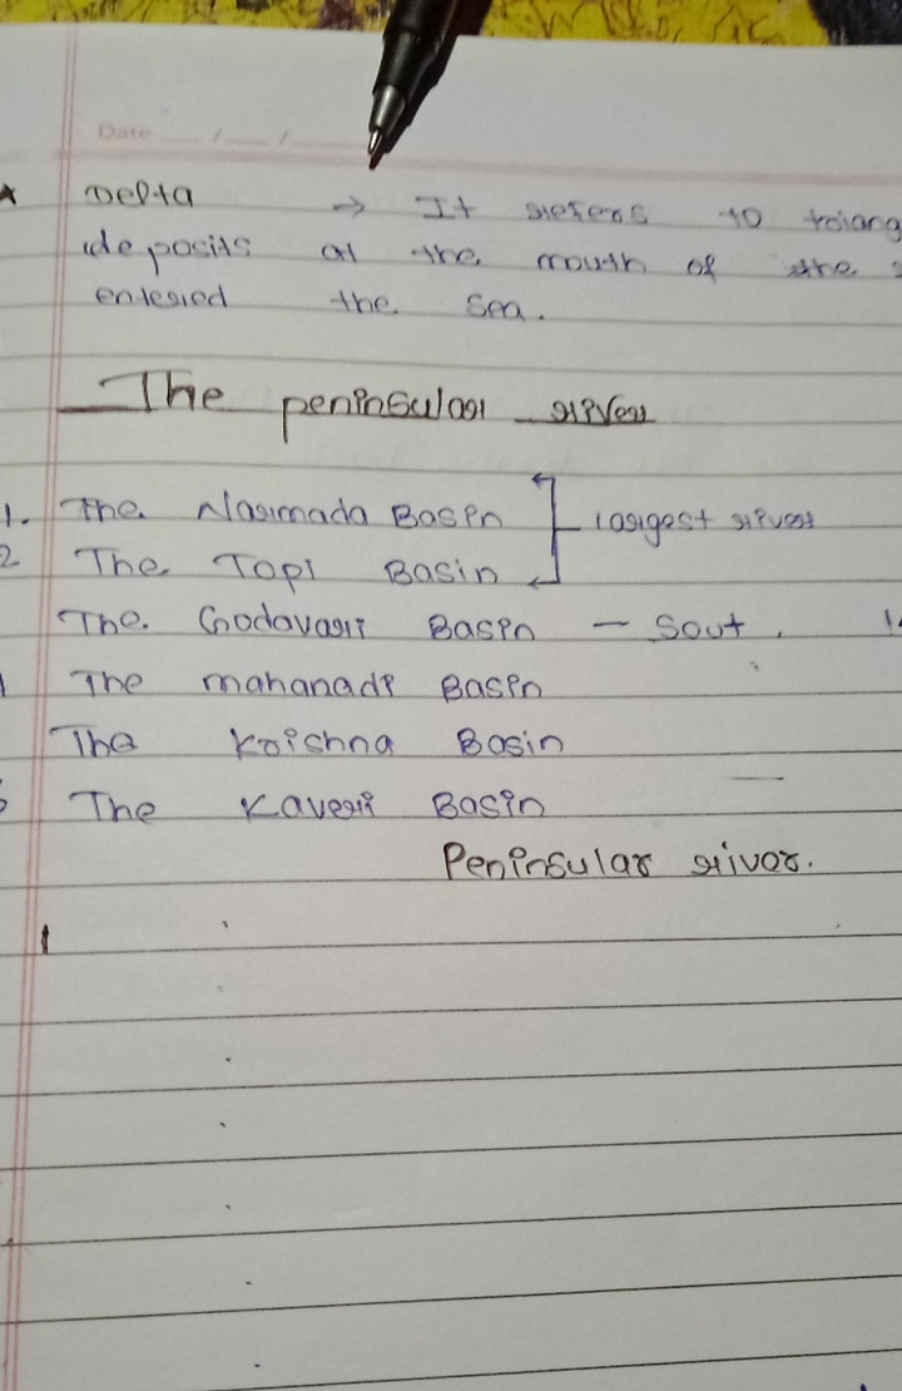 Date __/__/__
Delta → It refers to triang
deposits at the mouth of the
entered the sea.
The peninsular river
1. The Narmada Basin
largest rivers
2 The Tapi Basin
The Godavari Basin - Sout.
The mahanadi Basin
The Krishna Basin
The Kaveri Basin
Peninsular river.